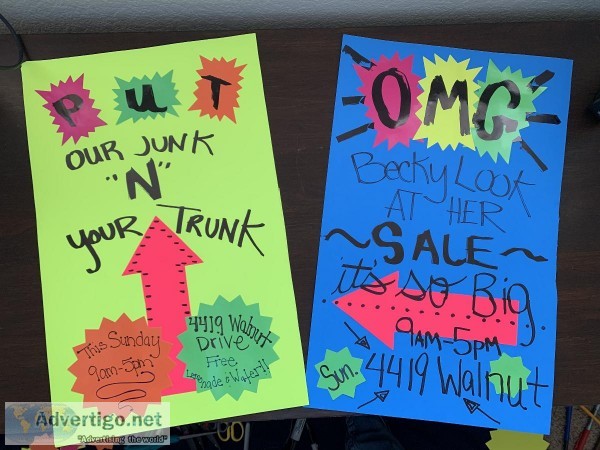 PUT
OUR JUNK
"N"
YOUR TRUNK
This Sunday
9am-5pm
4419 Walnut
Drive
Free
Lemonade & Water!!
OMG
Becky Look
AT HER
~SALE~
it's so Big
9AM-5PM
Sun.
4419 Walnut
Advertigo.net
"Advertising the world"